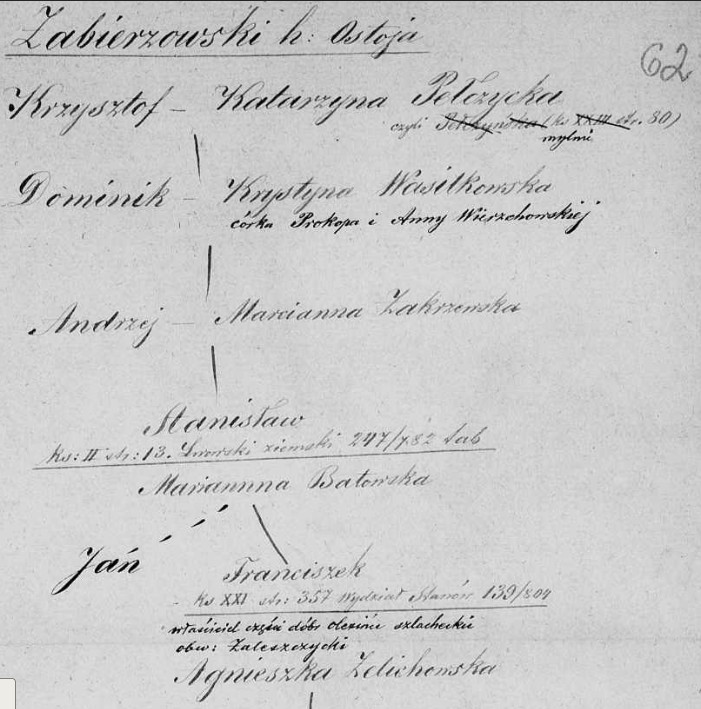 Zabierzowski h: Ostoja
62
Krzysztof – Katarzyna Pełczycka
czyli Pełczyńska (ks XXIII str. 80)
mylnie
Dominik – Krystyna Wasilkowska
córka Prokopa i Anny Wierzchowskiej
Andrzej – Marcianna Zakrzewska
Stanisław
ks: II str: 13. Lwowski ziemski 247/782 tab
Mariannna Batowska
Jań
Franciszek
ks XXI str: 357 Wydział Stanów 139/804
właściciel części dóbr szlachecki
obw: Zaleszczycki
Agnieszka Zelichowska